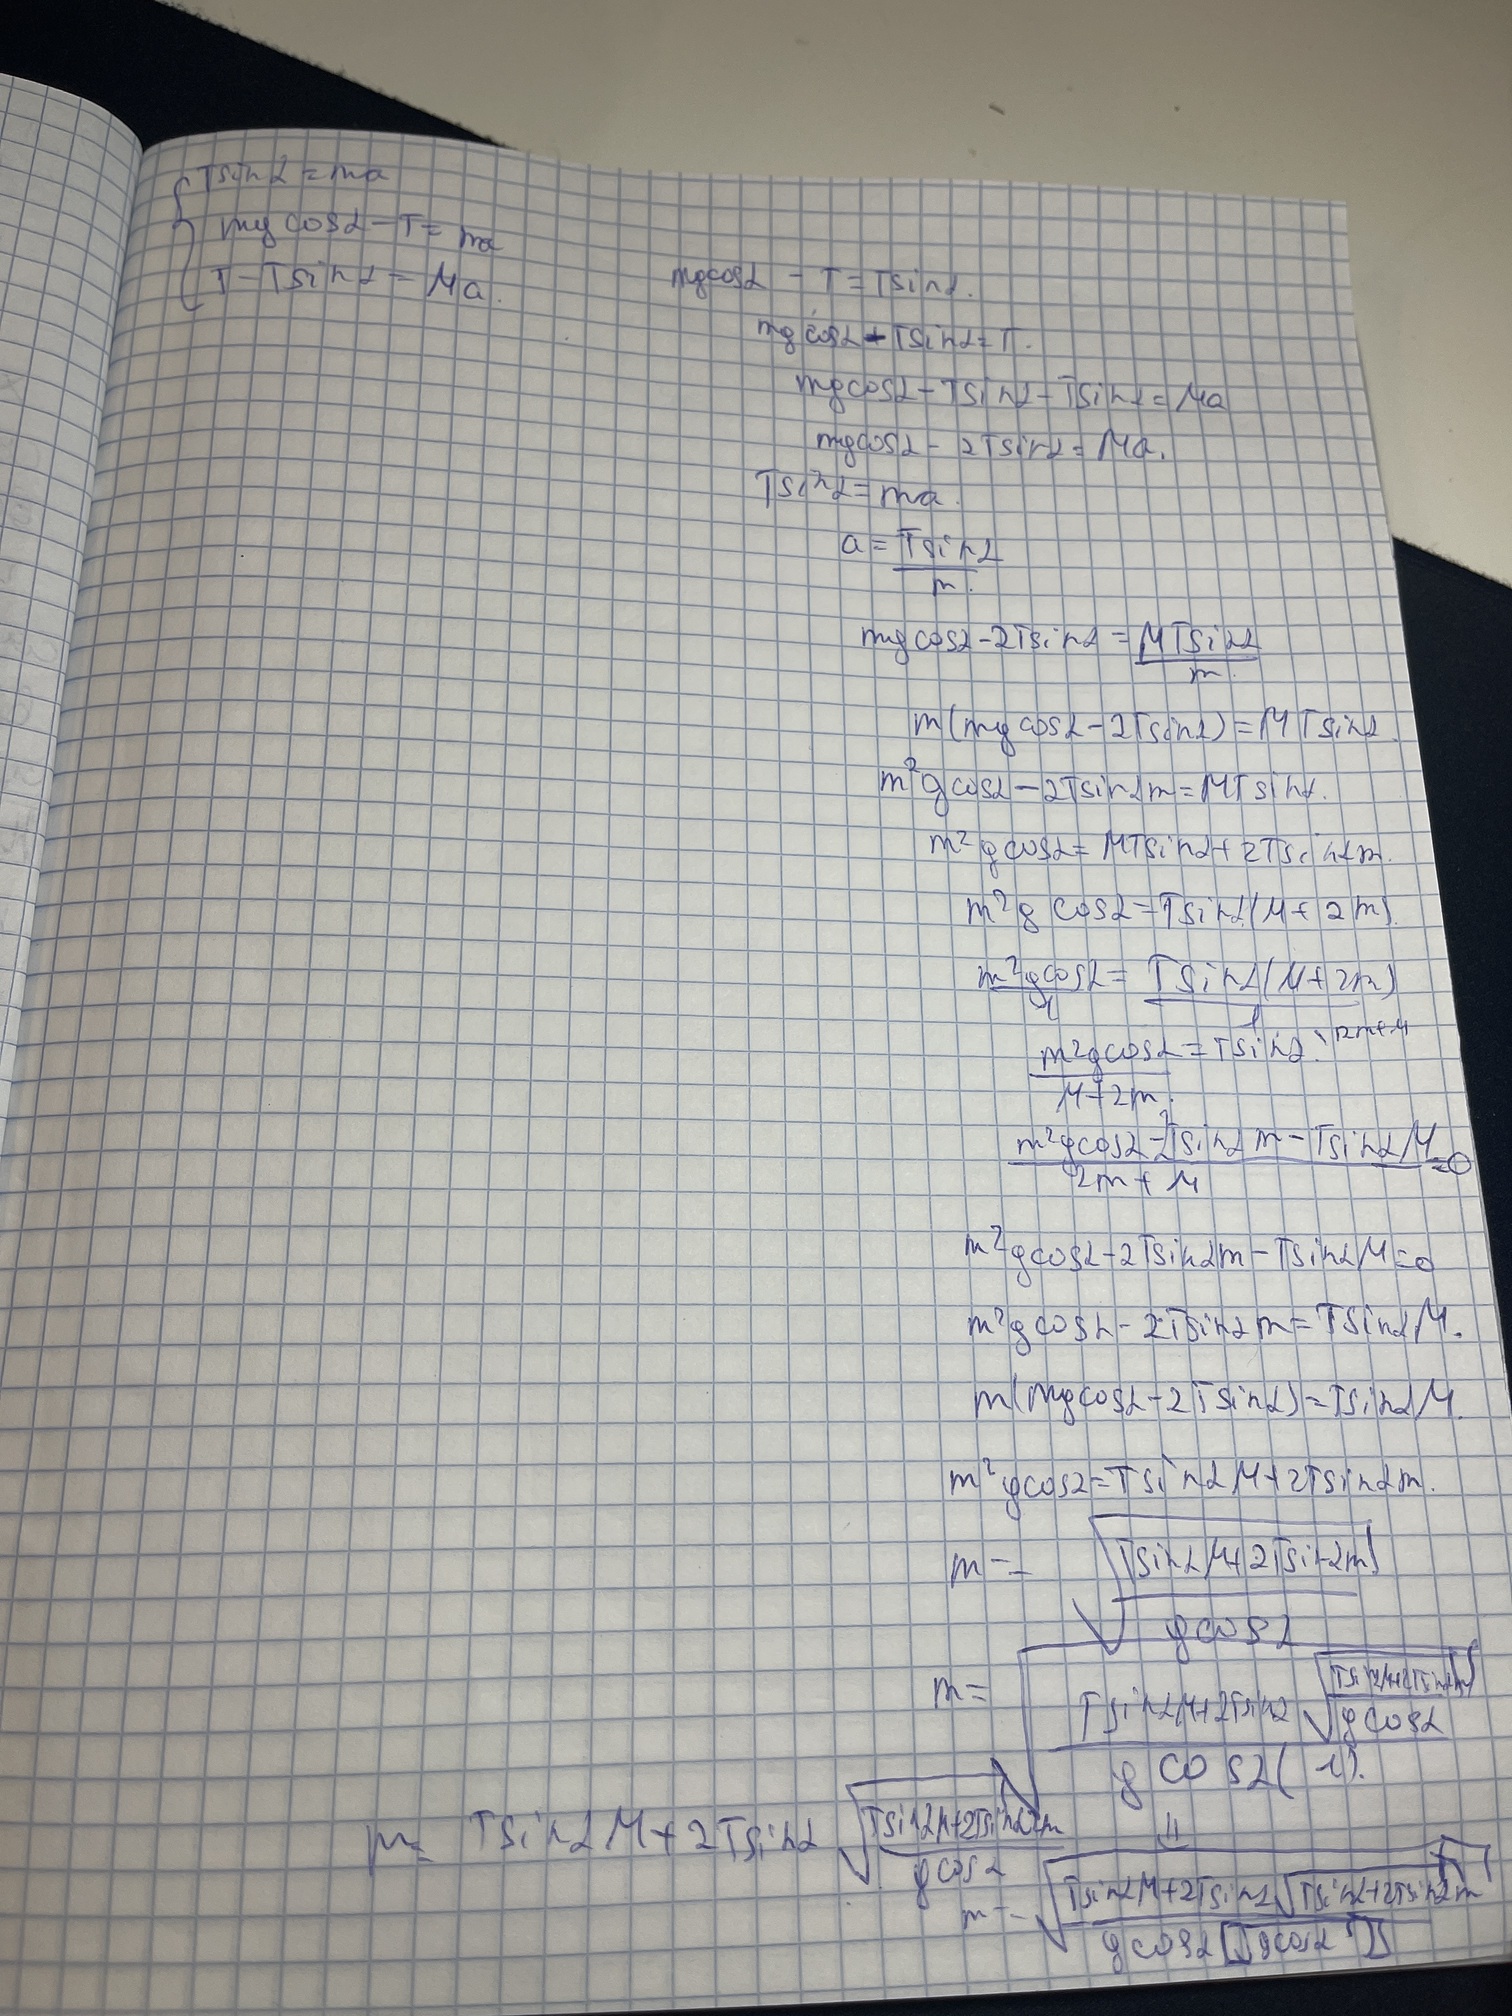 Tsinα = ma
mg cosα - T = ma
T - Tsinα = Ma.
mgcosα - T = Tsinα.
mg cosα - Tsinα = T.
mgcosα - Tsinα - Tsinα = Ma
mgcosα - 2Tsinα = Ma.
Tsinα = ma.
a = Tsinα/m.
mg cosα - 2Tsinα = MTsinα/m.
m(mg cosα - 2Tsinα) = MTsinα.
m²gcosα - 2Tsinαm = MTsinα.
m²gcosα = MTsinα + 2Tsinαm.
m²g cosα = Tsinα(M + 2m).
m²gcosα/1 = Tsinα(M + 2m)/1
m²gcosα/M + 2m. = Tsinα. \2m+M
m²gcosα - 2Tsinαm - TsinαM/2m + M = 0
m²gcosα - 2Tsinαm - TsinαM = 0
m²gcosα - 2Tsinαm = TsinαM.
m(mgcosα - 2Tsinα) = TsinαM.
m²gcosα = TsinαM + 2Tsinαm.
m = √(TsinαM + 2Tsinαm/gcosα)
m = √(TsinαM + 2Tsinα √(TsinαM + 2Tsinαm/gcosα)/gcosα(1).)
m = TsinαM + 2Tsinα √(TsinαM + 2Tsinαm/gcosα
m = √(TsinαM + 2Tsinα√Tsinα + 2Tsinαm/gcosα[√gcosα